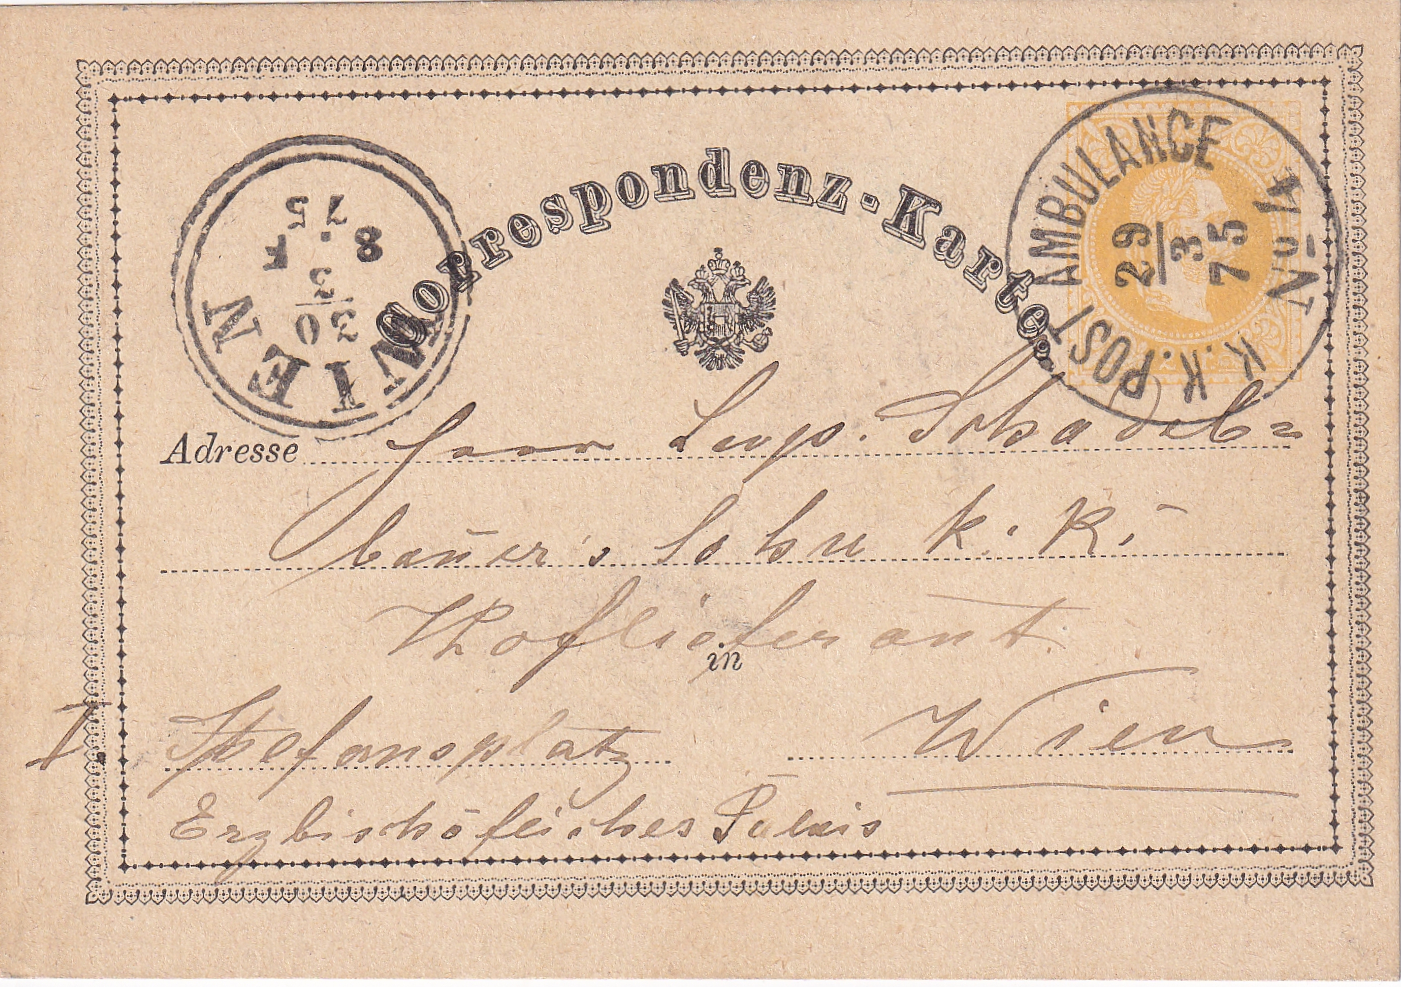 Correspondenz-Karte.
K.K. POST AMBULANCE No 4
29
3
75
WIEN
30
3
75
8 F
Adresse Herr Leop. Schadel=
bauer's Sohn k. K.
Hoflieferant
in
I. Stefansplatz Wien
Erzbischöfliches Palais